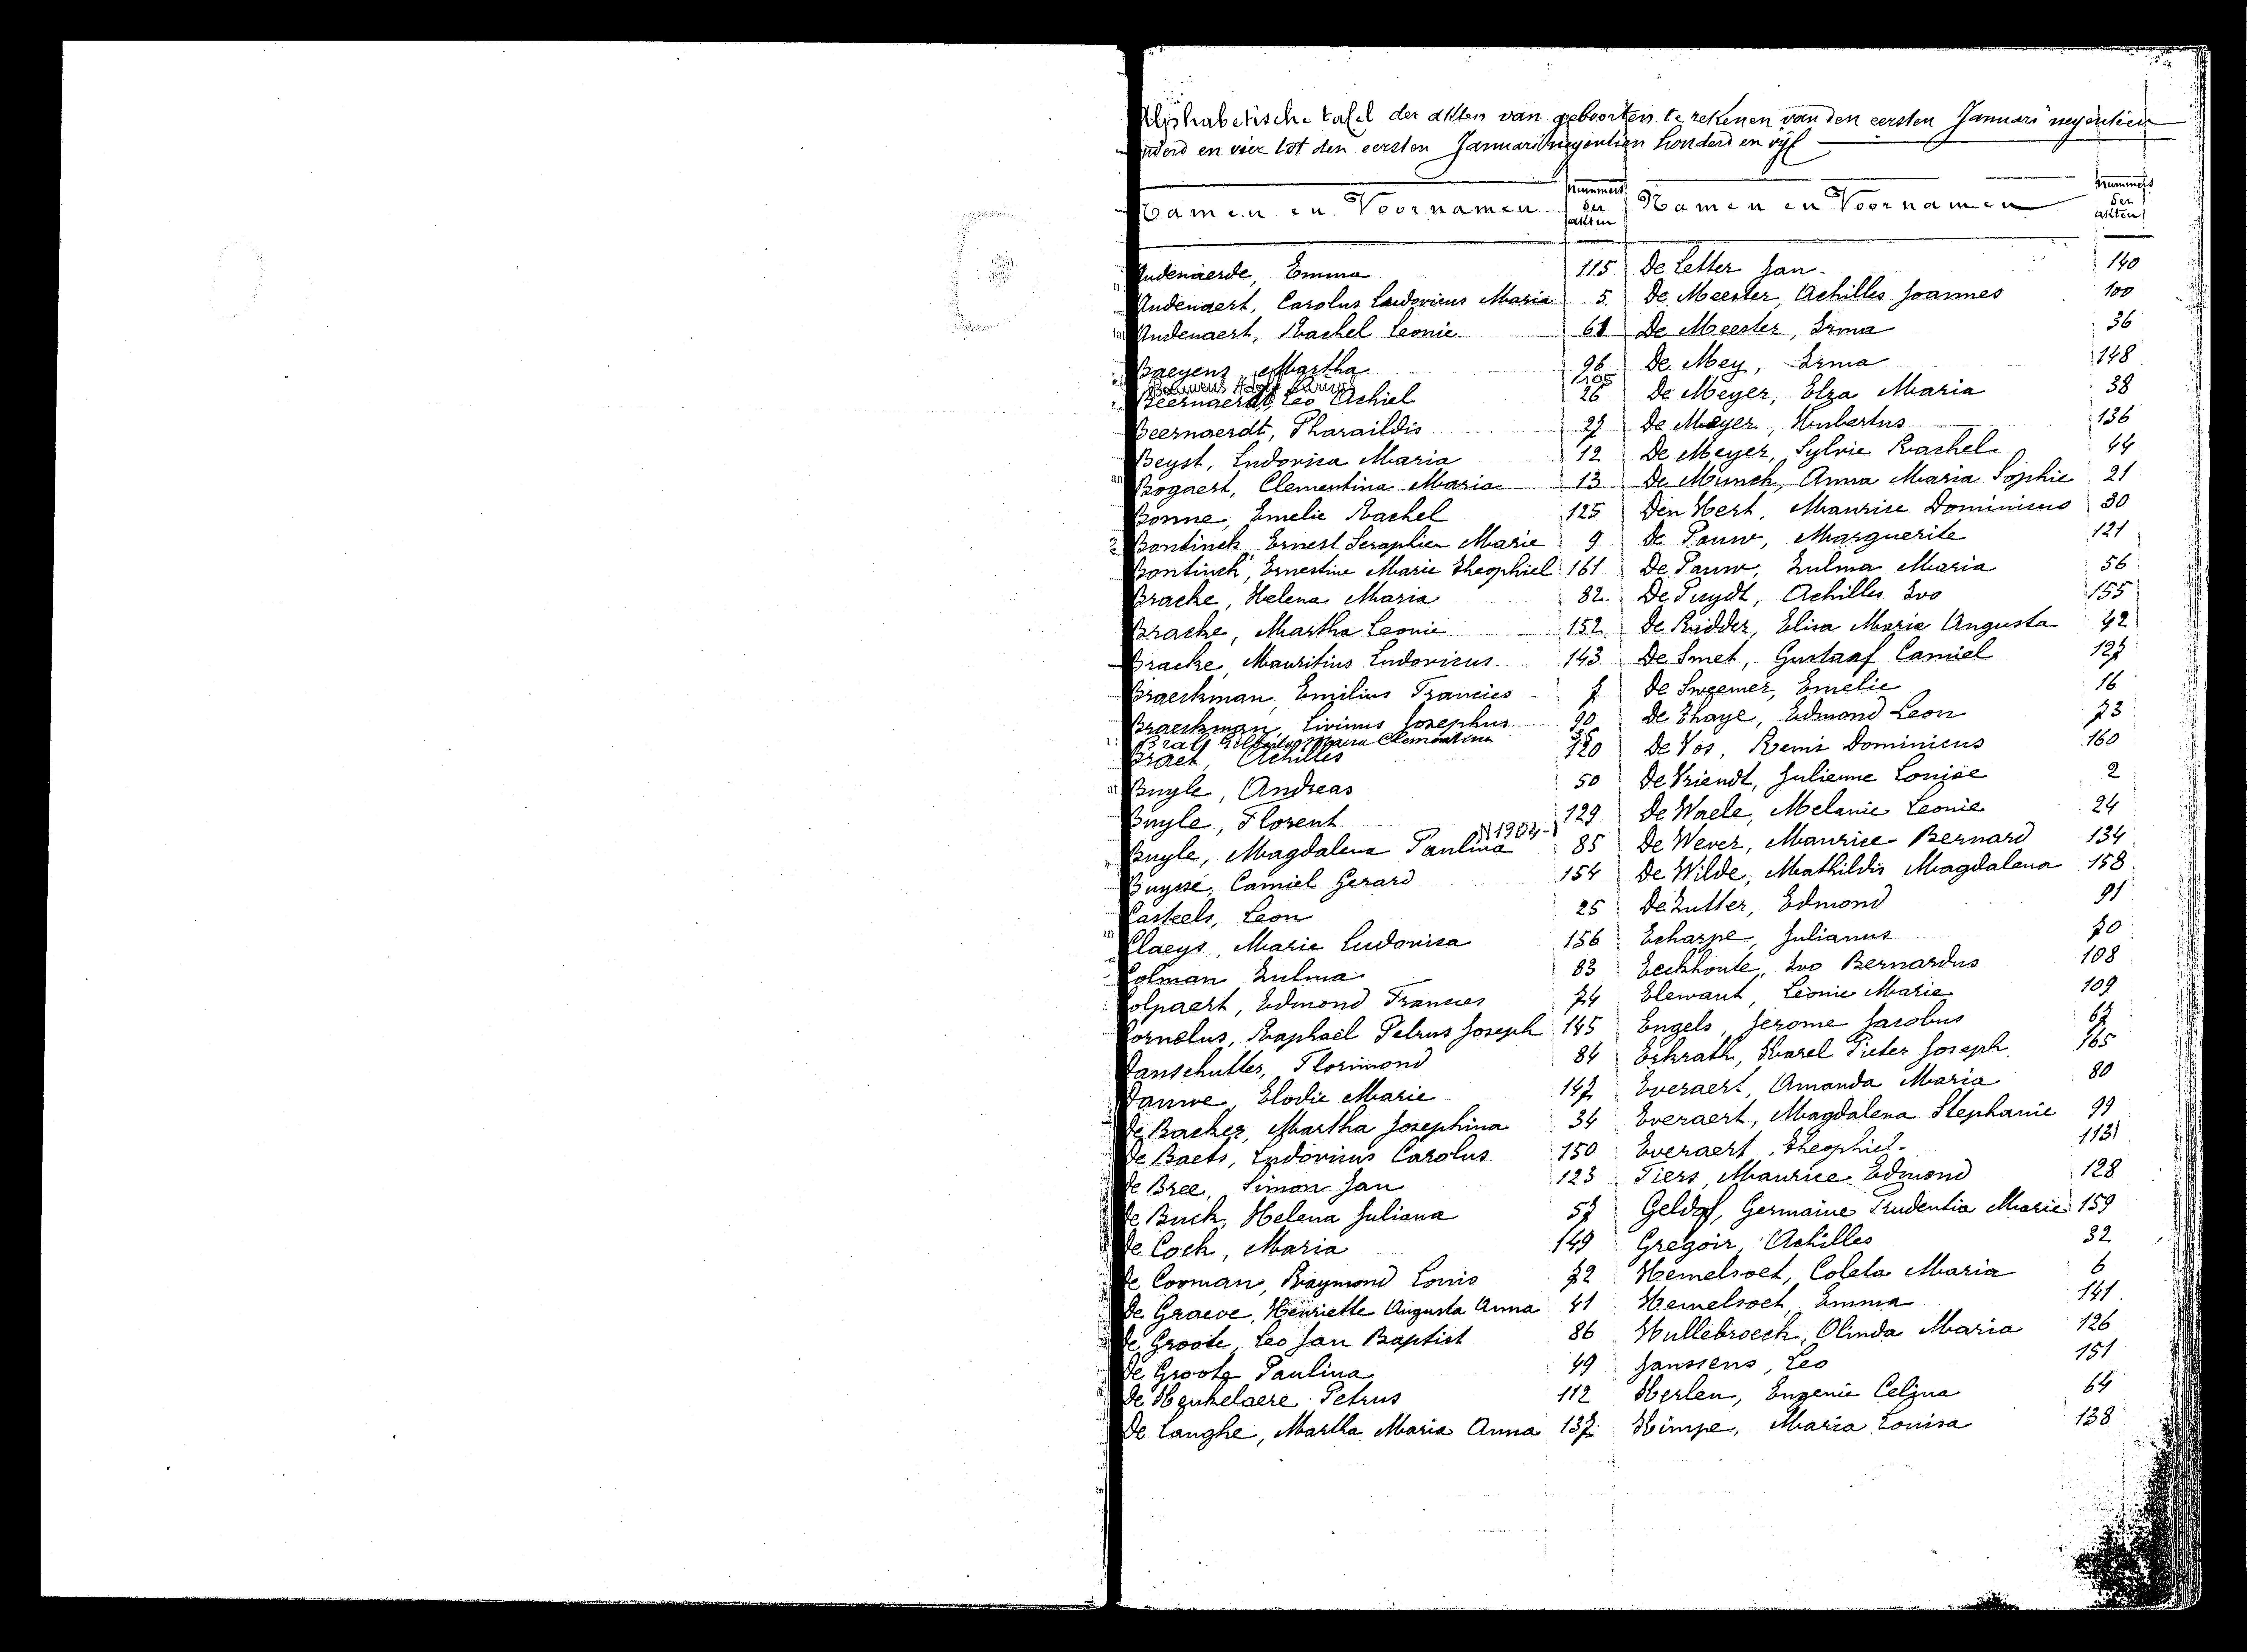 Alphabetische tafel der akten van geboorten te rekenen van den eersten Januari negentien
nderd en vier tot den eersten Januari negentien honderd en vijf
Namen en Voornamen
Nummers der akten
Namen en Voornamen
Nummers der akten
Audenaerde, Emma 115
Audenaert, Carolus Ludovicus Maria 5
Audenaert, Rachel Leonie 61
Baeyens, Martha 96
Adolf 105
Beernaerdt, Leo Achiel 26
Beernaerdt, Pharaildis 27
Beyst, Ludovica Maria 12
Bogaert, Clementina Maria 13
Bonne, Emelie Rachel 125
Bontinck, Ernest Seraphien Marie 9
Bontinck, Ernestine Marie Theophiel 161
Bracke, Helena Maria 82
Bracke, Martha Leonie 152
Bracke, Mauritius Ludovicus 143
Braeckman, Emilius Francies 7
Braeckman, Livinus Josephus 90
Maria Clementina
Braet, Achilles 120
Buyle, Andreas 50
Buyle, Florent 129
N 1904-1
Buyle, Magdalena Paulina 85
Buysse, Camiel Gerard 154
Casteels, Leon 25
Claeys, Marie Ludovica 156
Colman Zulma 83
Colpaert, Edmond Francies 74
Cornelus, Raphaël Petrus Joseph 145
Danschutter, Florimond 84
Dauwe, Elodie Marie 147
De Backer, Martha Josephina 34
De Baets, Ludovicus Carolus 150
De Bree, Simon Jan 123
De Buck, Helena Juliana 57
De Cock, Maria 149
De Cooman, Raymond Louis 72
De Graeve, Henriette Augusta Anna 41
De Groote, Leo Jan Baptist 86
De Groote Paulina 49
De Heukelaere Petrus 112
De Langhe, Martha Maria Anna 137
De Letter Jan 140
De Meester, Achilles Joannes 100
De Meester, Irma 36
De Mey, Irma 148
De Meyer, Elza Maria 38
De Meyer, Hubertus 136
De Meyer, Sylvie Rachel 44
De Munck, Anna Maria Sophie 21
Den Hert, Maurice Dominicus 30
De Pauw, Marguerite 121
De Pauw, Zulma Maria 56
De Puydt, Achilles Ivo 155
De Ridder, Elisa Maria Augusta 42
De Smet, Gustaaf Camiel 127
De Sweemer, Emelie 16
De Thaye, Edmond Leon 73
De Vos, Remi Dominicus 160
De Vriendt, Julienne Louise 2
De Waele, Melanie Leonie 24
De Wever, Maurice Bernard 134
De Wilde, Mathildis Magdalena 158
De Zutter, Edmond 91
Echarpe, Julianus 70
Eeckhoute, Ivo Bernardus 108
Elewaut, Léonie Marie 109
Engels, Jerome Jacobus 67
Erkrath, Karel Pieter Joseph 165
Everaert, Amanda Maria 80
Everaert, Magdalena Stephanie 99
Everaert, Theophiel 113
Fiers, Maurice Edmond 128
Geldof, Germaine Prudentia Marie 159
Gregoir, Achilles 32
Hemelsoet, Coleta Maria 6
Hemelsoet, Emma 141
Hullebroeck, Olinda Maria 126
Janssens, Leo 151
Herlen, Eugenie Celina 64
Himpe, Maria Louisa 138